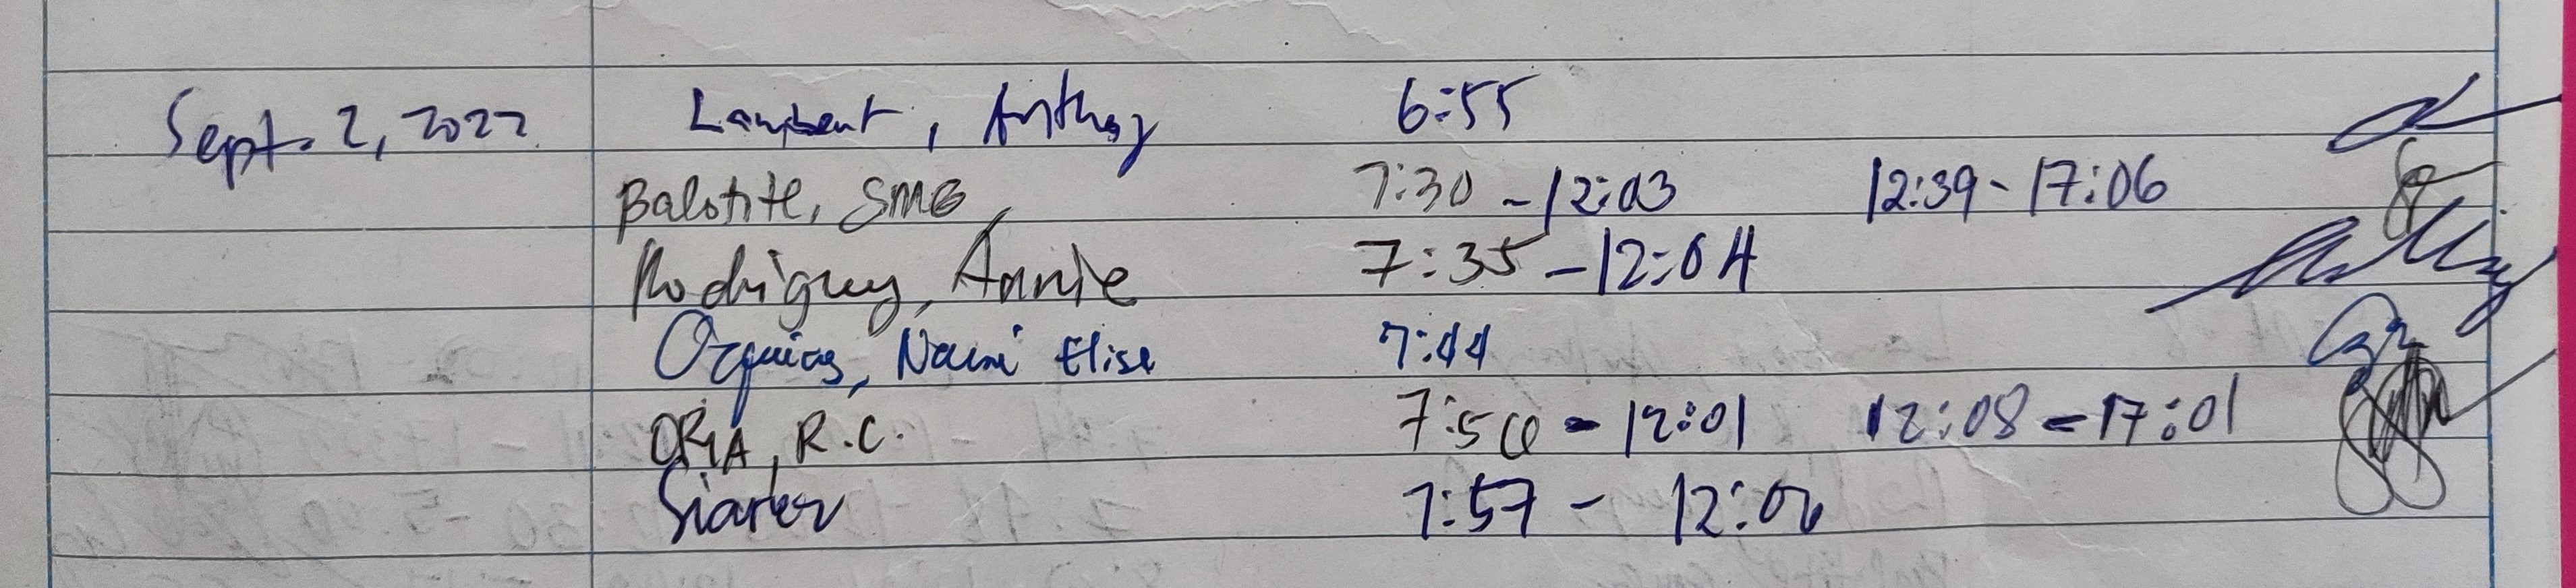 Sept. 2, 2022 Lambent, Anthony 6:55
Balotite, SMG 7:30 - 12:03 12:39 - 17:06
Rodriguez, Annie 7:35 - 12:04
Orquias, Naomi Elise 7:44
ORIA, R.C. 7:56 - 12:01 12:08 - 17:01
7:57 - 12:06